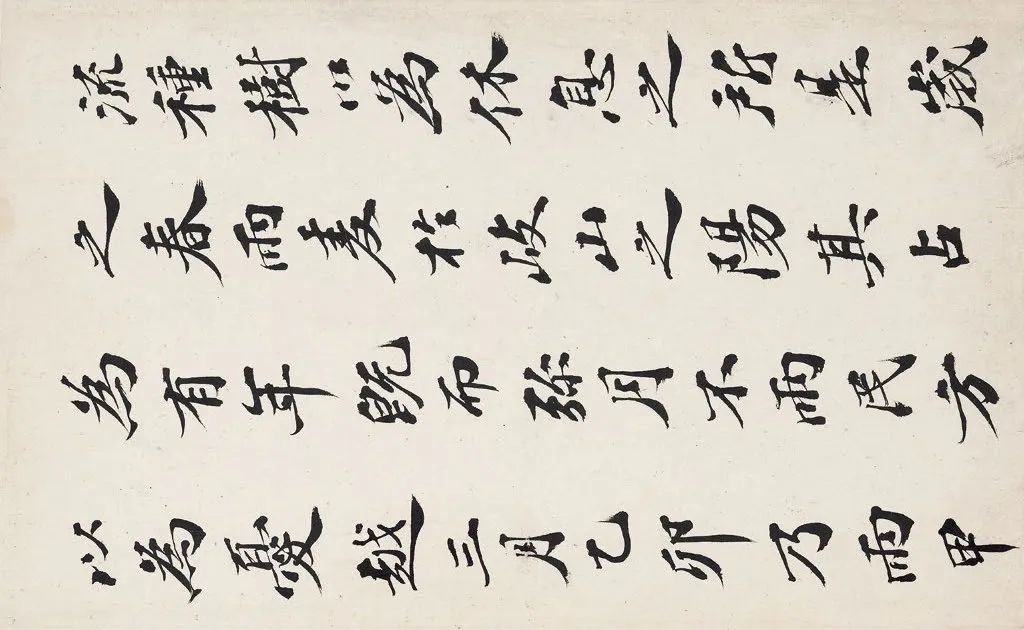 流種樹以為休息之所是歲
之春雨麥於岐山之陽其占
為有年既而彌月不雨民方
以為憂越三月乙卯乃雨甲